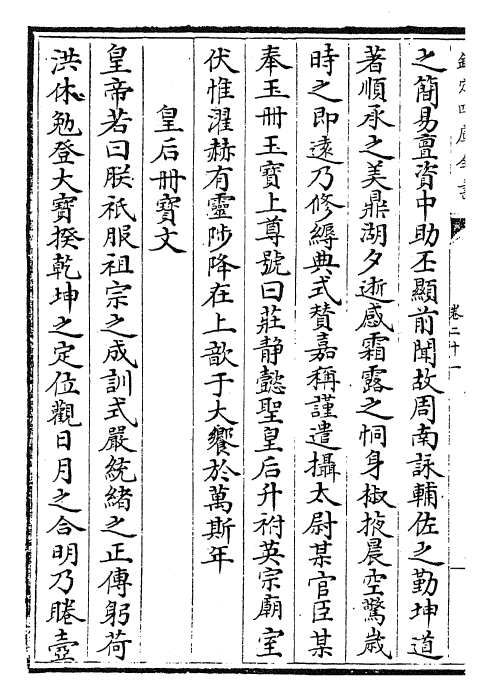 之簡易亶資中助丕顯前聞故周南詠輔佐之勤坤道
著順承之美鼎湖夕逝感霜露之恫身椒掖晨空驚歳
時之即遠乃修縟典式賛嘉稱謹遣攝太尉某官臣某
奉玉冊玉寳上尊號曰莊静懿聖皇后升祔英宗廟室
伏惟濯赫有靈陟降在上歆于大饗於萬斯年
皇后冊寳文
皇帝若曰朕祗服祖宗之成訓式嚴統緒之正傳躬荷
洪休勉登大寳揆乾坤之定位觀日月之合明乃睠壼
欽定四庫全書
卷二十一